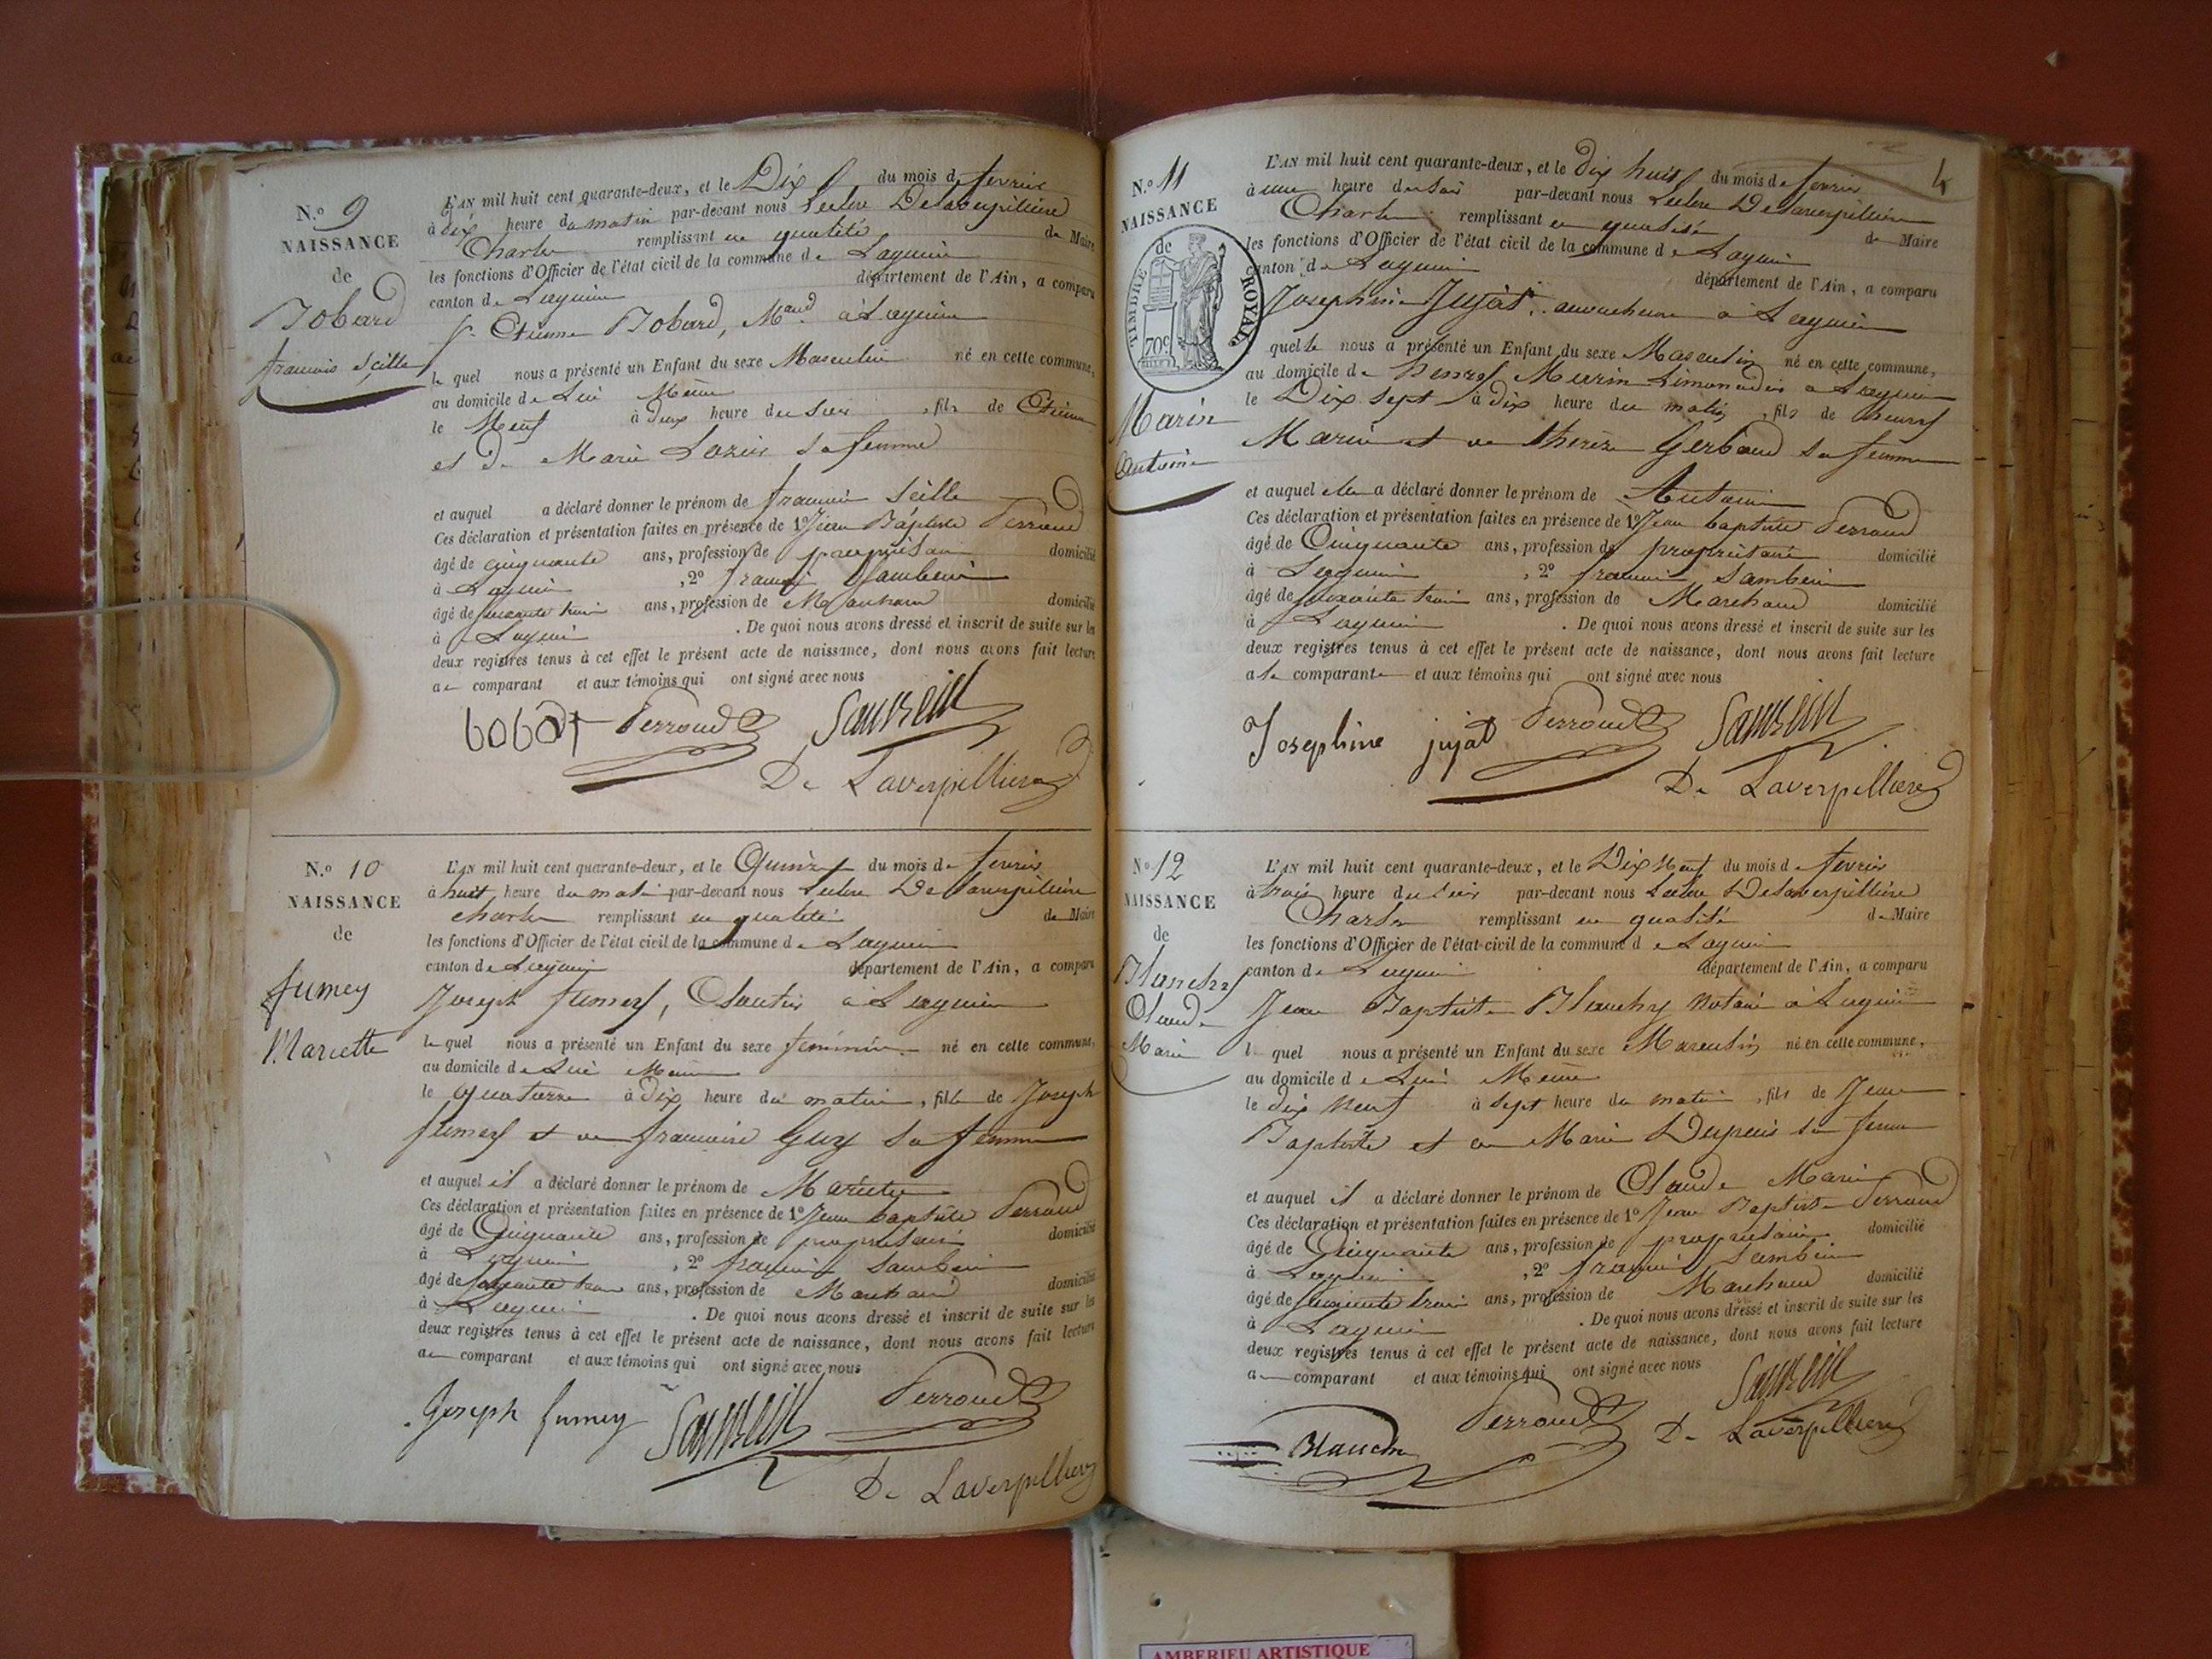 N.º 9
NAISSANCE
de
Bobard
L'AN mil huit cent quarante-deux, et le Dix du mois de fevrier
à dix heure du matin par-devant nous Leclerc Delaverpillière
Charles remplissant en qualité de Maire
les fonctions d'Officier de l'état civil de la commune de Lagnieu
canton de Lagnieu département de l'Ain, a comparu
Etienne Bobard, Mand à Lagnieu
le quel nous a présenté un Enfant du sexe Masculin né en cette commune,
au domicile de Lui Même
le Neuf à deux heure du soir, fils de Etienne
et de Marie sa femme
et auquel a déclaré donner le prénom de
Ces déclaration et présentation faites en présence de 1º Jean Baptiste Perroud
âgé de cinquante ans, profession de propriétaire domicilié
à Lagnieu, 2º françois Sambein
âgé de soixante trois ans, profession de Marchand domicilié
à Lagnieu. De quoi nous avons dressé et inscrit de suite sur les
deux registres tenus à cet effet le présent acte de naissance, dont nous avons fait lecture
au comparant et aux témoins qui ont signé avec nous
Perroud Sambein
De Laverpilliere
N.º 10
NAISSANCE
de
fumey
Mariette
L'AN mil huit cent quarante-deux, et le Quinze du mois de fevrier
à huit heure du matin par-devant nous Leclerc De Laverpilliere
Charles remplissant en qualité de Maire
les fonctions d'Officier de l'état civil de la commune de Lagnieu
canton de Lagnieu département de l'Ain, a comparu
Joseph fumey, Cloutier à Lagnieu
le quel nous a présenté un Enfant du sexe feminin né en cette commune,
au domicile de Lui Même
le quatorze à dix heure du matin, fille de Joseph
fumey et de françoise Guy sa femme
et auquel il a déclaré donner le prénom de Mariette
Ces déclaration et présentation faites en présence de 1º Jean baptiste Perroud
âgé de Cinquante ans, profession de propriétaire domicilié
à Lagnieu, 2º françois Sambein
âgé de soixante trois ans, profession de Marchand domicilié
à Lagnieu. De quoi nous avons dressé et inscrit de suite sur les
deux registres tenus à cet effet le présent acte de naissance, dont nous avons fait lecture
au comparant et aux témoins qui ont signé avec nous
Joseph fumey Sambein Perroud
De Laverpilliere
4
N.º 11
NAISSANCE
de
TIMBRE ROYAL
70c
Marin
Antoine
L'AN mil huit cent quarante-deux, et le dix huit du mois de fevrier
à une heure du soir par-devant nous Leclerc Delaverpilliere
Charles remplissant en qualité de Maire
les fonctions d'Officier de l'état civil de la commune de Lagnieu
canton de Lagnieu département de l'Ain, a comparu
Josephine Jujat accoucheuse à Lagnieu
quelle nous a présenté un Enfant du sexe Masculin né en cette commune,
au domicile de henry Marin Limonadier à Lagnieu
le Dix sept à dix heure du matin, fils de henry
Marin et de therèse Gerbaud sa femme
et auquel elle a déclaré donner le prénom de Antoine
Ces déclaration et présentation faites en présence de 1º Jean baptiste Perroud
âgé de Cinquante ans, profession de propriétaire domicilié
à Lagnieu, 2º françois Sambein
âgé de soixante trois ans, profession de Marchand domicilié
à Lagnieu. De quoi nous avons dressé et inscrit de suite sur les
deux registres tenus à cet effet le présent acte de naissance, dont nous avons fait lecture
a la comparante et aux témoins qui ont signé avec nous
Josephine jujat Perroud Sambein
De Laverpilliere
N.º 12
NAISSANCE
de
Blanchy
Claude
Marie
L'AN mil huit cent quarante-deux, et le Dix Neuf du mois de fevrier
à trois heure du soir par-devant nous Leclerc Delaverpillière
Charles remplissant en qualité de Maire
les fonctions d'Officier de l'état-civil de la commune de Lagnieu
canton de Lagnieu département de l'Ain, a comparu
Jean Baptiste Blanchy Notaire à Lagnieu
le quel nous a présenté un Enfant du sexe Masculin né en cette commune,
au domicile de Lui Même
le dix neuf à sept heure du matin, fils de Jean
Baptiste et de Marie Dupuis sa femme
et auquel il a déclaré donner le prénom de Claude Marie
Ces déclaration et présentation faites en présence de 1º Jean Baptiste Perroud
âgé de Cinquante ans, profession de propriétaire domicilié
à Lagnieu, 2º françois Sambein
âgé de soixante trois ans, profession de Marchand domicilié
à Lagnieu. De quoi nous avons dressé et inscrit de suite sur les
deux registres tenus à cet effet le présent acte de naissance, dont nous avons fait lecture
au comparant et aux témoins qui ont signé avec nous
Blanchy Perroud Sambein
De Laverpilliere
AMBERIEU ARTISTIQUE